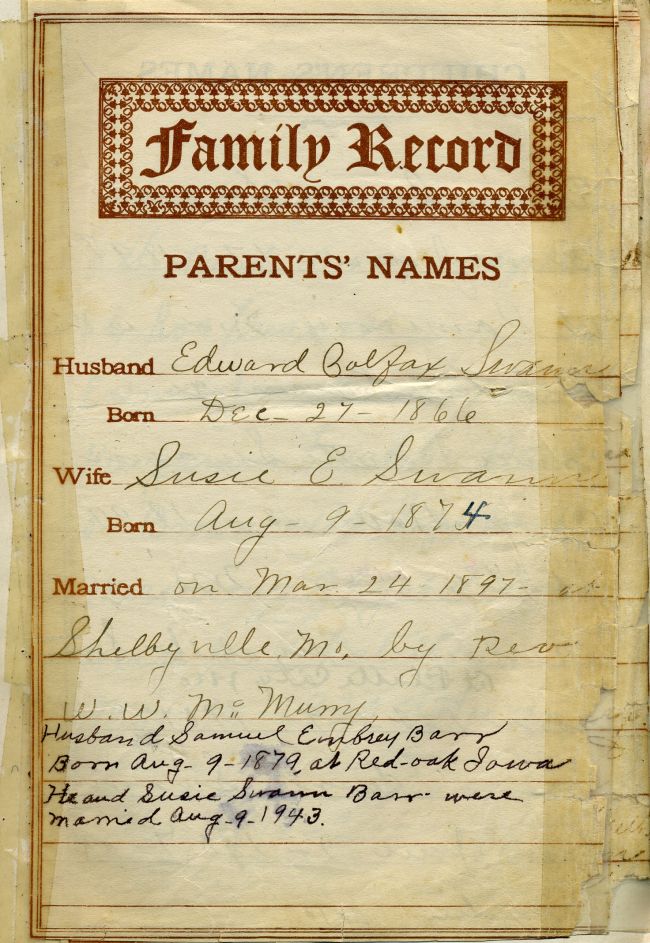 Family Record
PARENTS' NAMES
Husband Edward Colfax Swann
Born Dec - 27 - 1866
Wife Susie E Swann
Born Aug - 9 - 1874
Married on Mar. 24 - 1897 - at
Shelbyville, Mo, by Rev
W. W. Mc Murry
Husband Samuel Embrey Barr
Born Aug - 9 - 1879, at Red-oak Iowa
He and Susie Swann Barr were
married Aug - 9 - 1943.